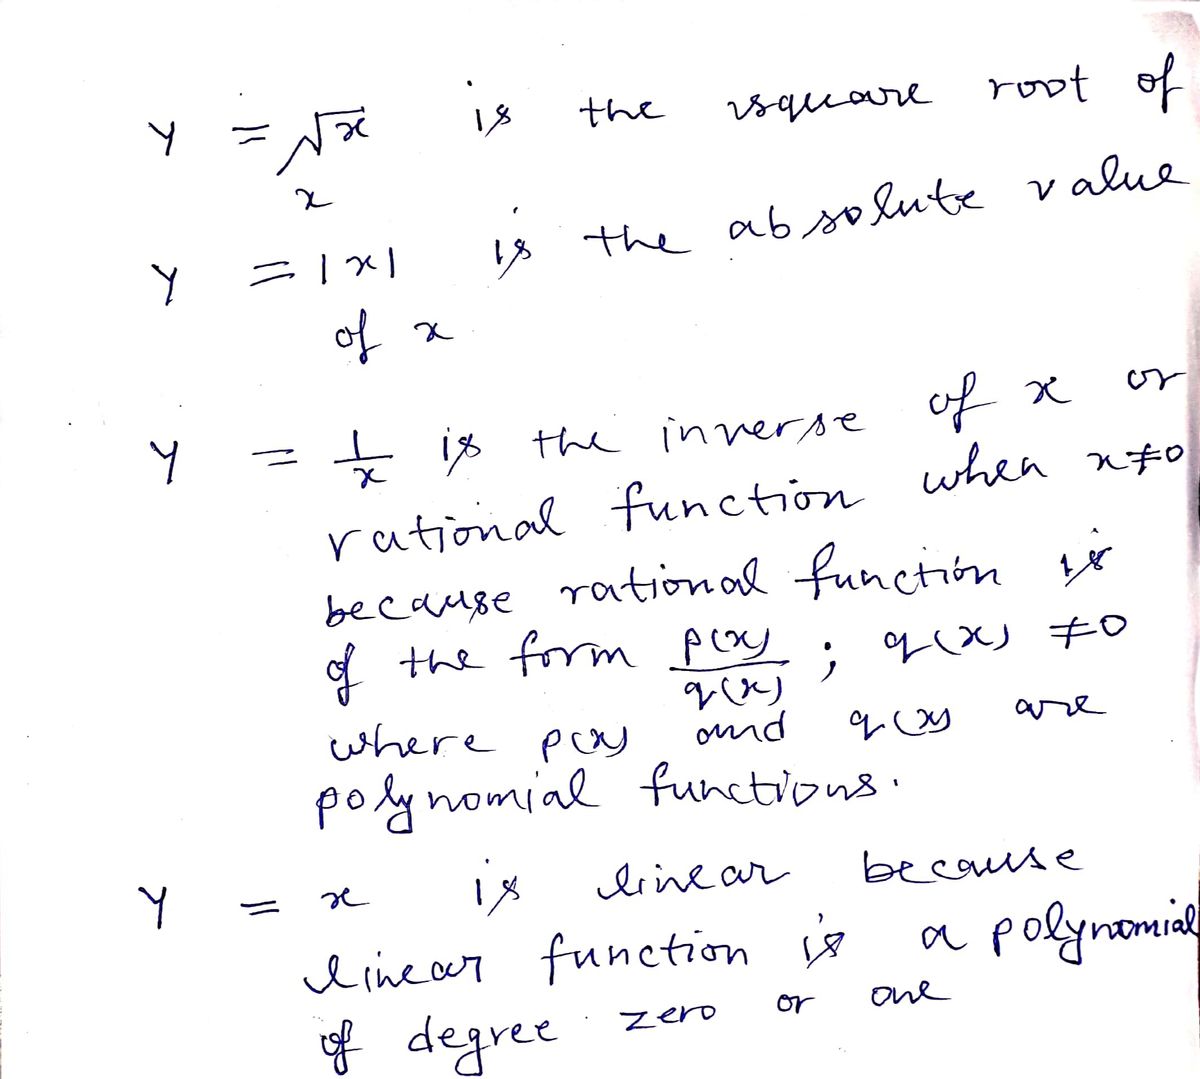 y = √x is the square root of
x
y = |x| is the absolute value
of x
y = 1/x is the inverse of x or
rational function when x≠0
because rational function is
of the form p(x)/q(x) ; q(x) ≠0
where p(x) and q(x) are
polynomial functions.
y = x is linear because
linear function is a polynomial
of degree zero or one